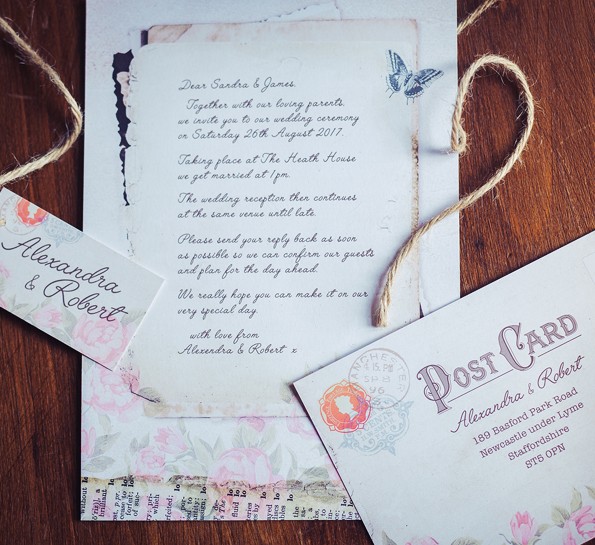 Dear Sandra & James,
Together with our loving parents,
we invite you to our wedding ceremony
on Saturday 26th August 2017.
Taking place at The Heath House
we get married at 1pm.
The wedding reception then continues
at the same venue until late.
Please send your reply back as soon
as possible so we can confirm our guests
and plan for the day ahead.
We really hope you can make it on our
very special day.
with love from
Alexendra & Robert x
Alexandra
& Robert
POST CARD
Alexandra & Robert
189 Basford Park Road
Newcastle under Lyme
Staffordshire
ST5 0PN